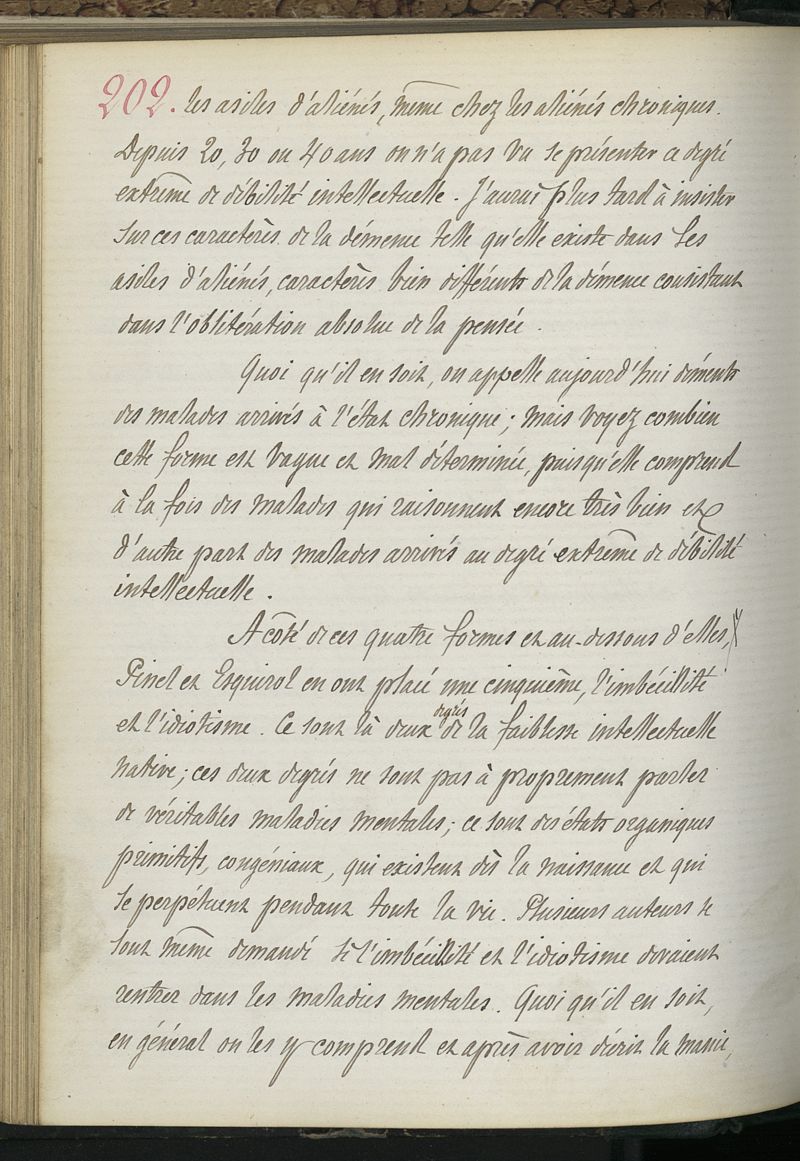 202. les asiles d'aliénés, même chez les aliénés chroniques.
Depuis 20, 30 ou 40 ans on n'a pas vu se présenter ce degré
extrême de débilité intellectuelle. J'aurai plus tard à insister
sur ces caractères de la démence telle qu'elle existe dans les
asiles d'aliénés, caractères bien différents de la démence consistant
dans l'oblitération absolue de la pensée.
Quoi qu'il en soit, on appelle aujourd'hui déments
des malades arrivés à l'état chronique; mais voyez combien
cette forme est vague et mal déterminée, puisqu'elle comprend
à la fois des malades qui raisonnent encore très bien et
d'autre part des malades arrivés au degré extrême de débilité
intellectuelle.
A côté de ces quatre formes et au-dessous d'elles,
Pinel et Esquirol en ont placé une cinquième, l'imbécillité
et l'idiotisme. Ce sont là deux degrés de la faiblesse intellectuelle
native; ces deux degrés ne sont pas à proprement parler
de véritables maladies mentales; ce sont des états organiques
primitifs, congéniaux, qui existent dès la naissance et qui
se perpétuent pendant toute la vie. Plusieurs auteurs se
sont même demandé si l'imbécillité et l'idiotisme devaient
rentrer dans les maladies mentales. Quoi qu'il en soit,
en général on les y comprend et après avoir décrit la manie,